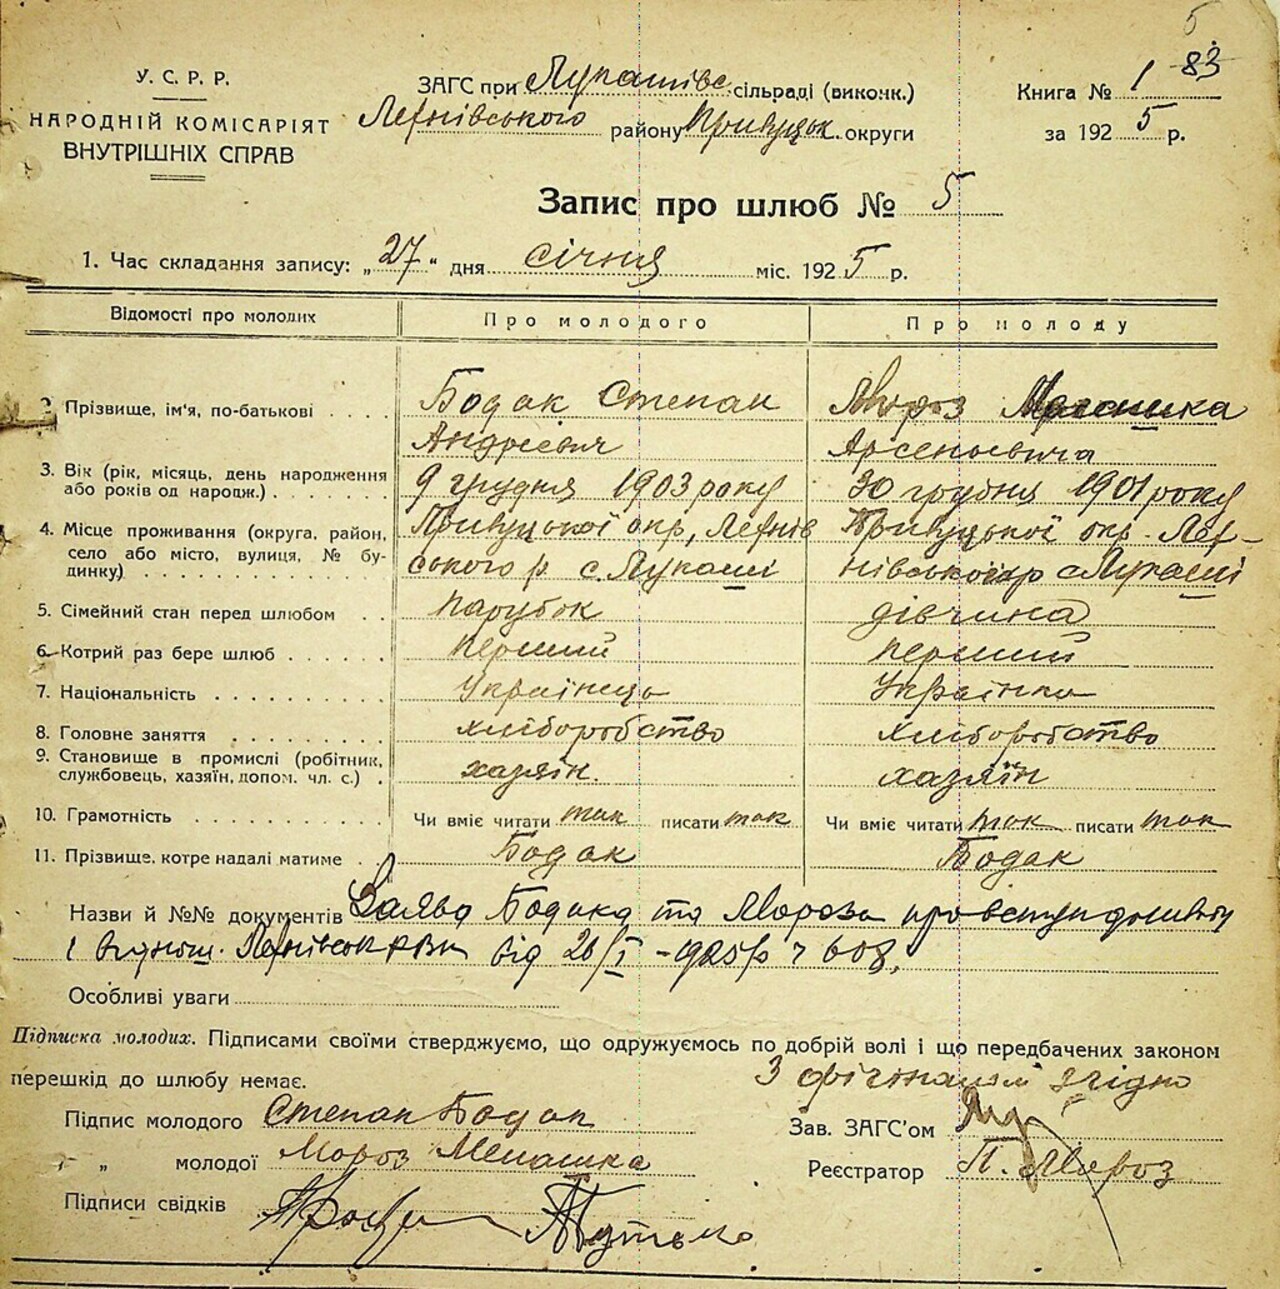 5
83
У. С. Р. Р.
НАРОДНІЙ КОМІСАРІЯТ
ВНУТРІШНІХ СПРАВ
ЗАГС при Лукашівс. сільраді (виконк.)
району Прилуцьк. округи
Книга № 1
за 1925 р.
Запис про шлюб № 5
1. Час складання запису: „27“ дня січня міс. 1925 р.
Відомості про молодих
Про молодого
Про молоду
2. Прізвище, ім'я, по-батькові
Бодак Степан
Андрієвич
Мороз
Арсеньевича
3. Вік (рік, місяць, день народження
або років од народж.)
9 грудня 1903 року
30 грудня 1901 року
4. Місце проживання (округа, район,
село або місто, вулиця, № бу-
динку)
Прилуцької окр,
ського р с. Лукаші
Прилуцької окр.
с Лукаші
5. Сімейний стан перед шлюбом
парубок
дівчина
6. Котрий раз бере шлюб
перший
перший
7. Національність
Українець
Українка
8. Головне заняття
хліборобство
хліборобство
9. Становище в промислі (робітник,
службовець, хазяїн, допом. чл. с.)
хазяїн.
хазяїн
10. Грамотність
Чи вміє читати так писати так
Чи вміє читати так писати так
11. Прізвище, котре надалі матиме
Бодак
Бодак
Назви й №№ документів Заява Бодака та Мороза про вступ до шлюбу
і від 26/I - 925 р ч 608,
Особливі уваги
Підписка молодих. Підписами своїми стверджуємо, що одружуємось по добрій волі і що передбачених законом
перешкід до шлюбу немає.
З орігіналом згідно
Підпис молодого Степан Бодак
Зав. ЗАГС'ом
„ „ молодої Мороз Мелашка
Реєстратор П. Мороз
Підписи свідків